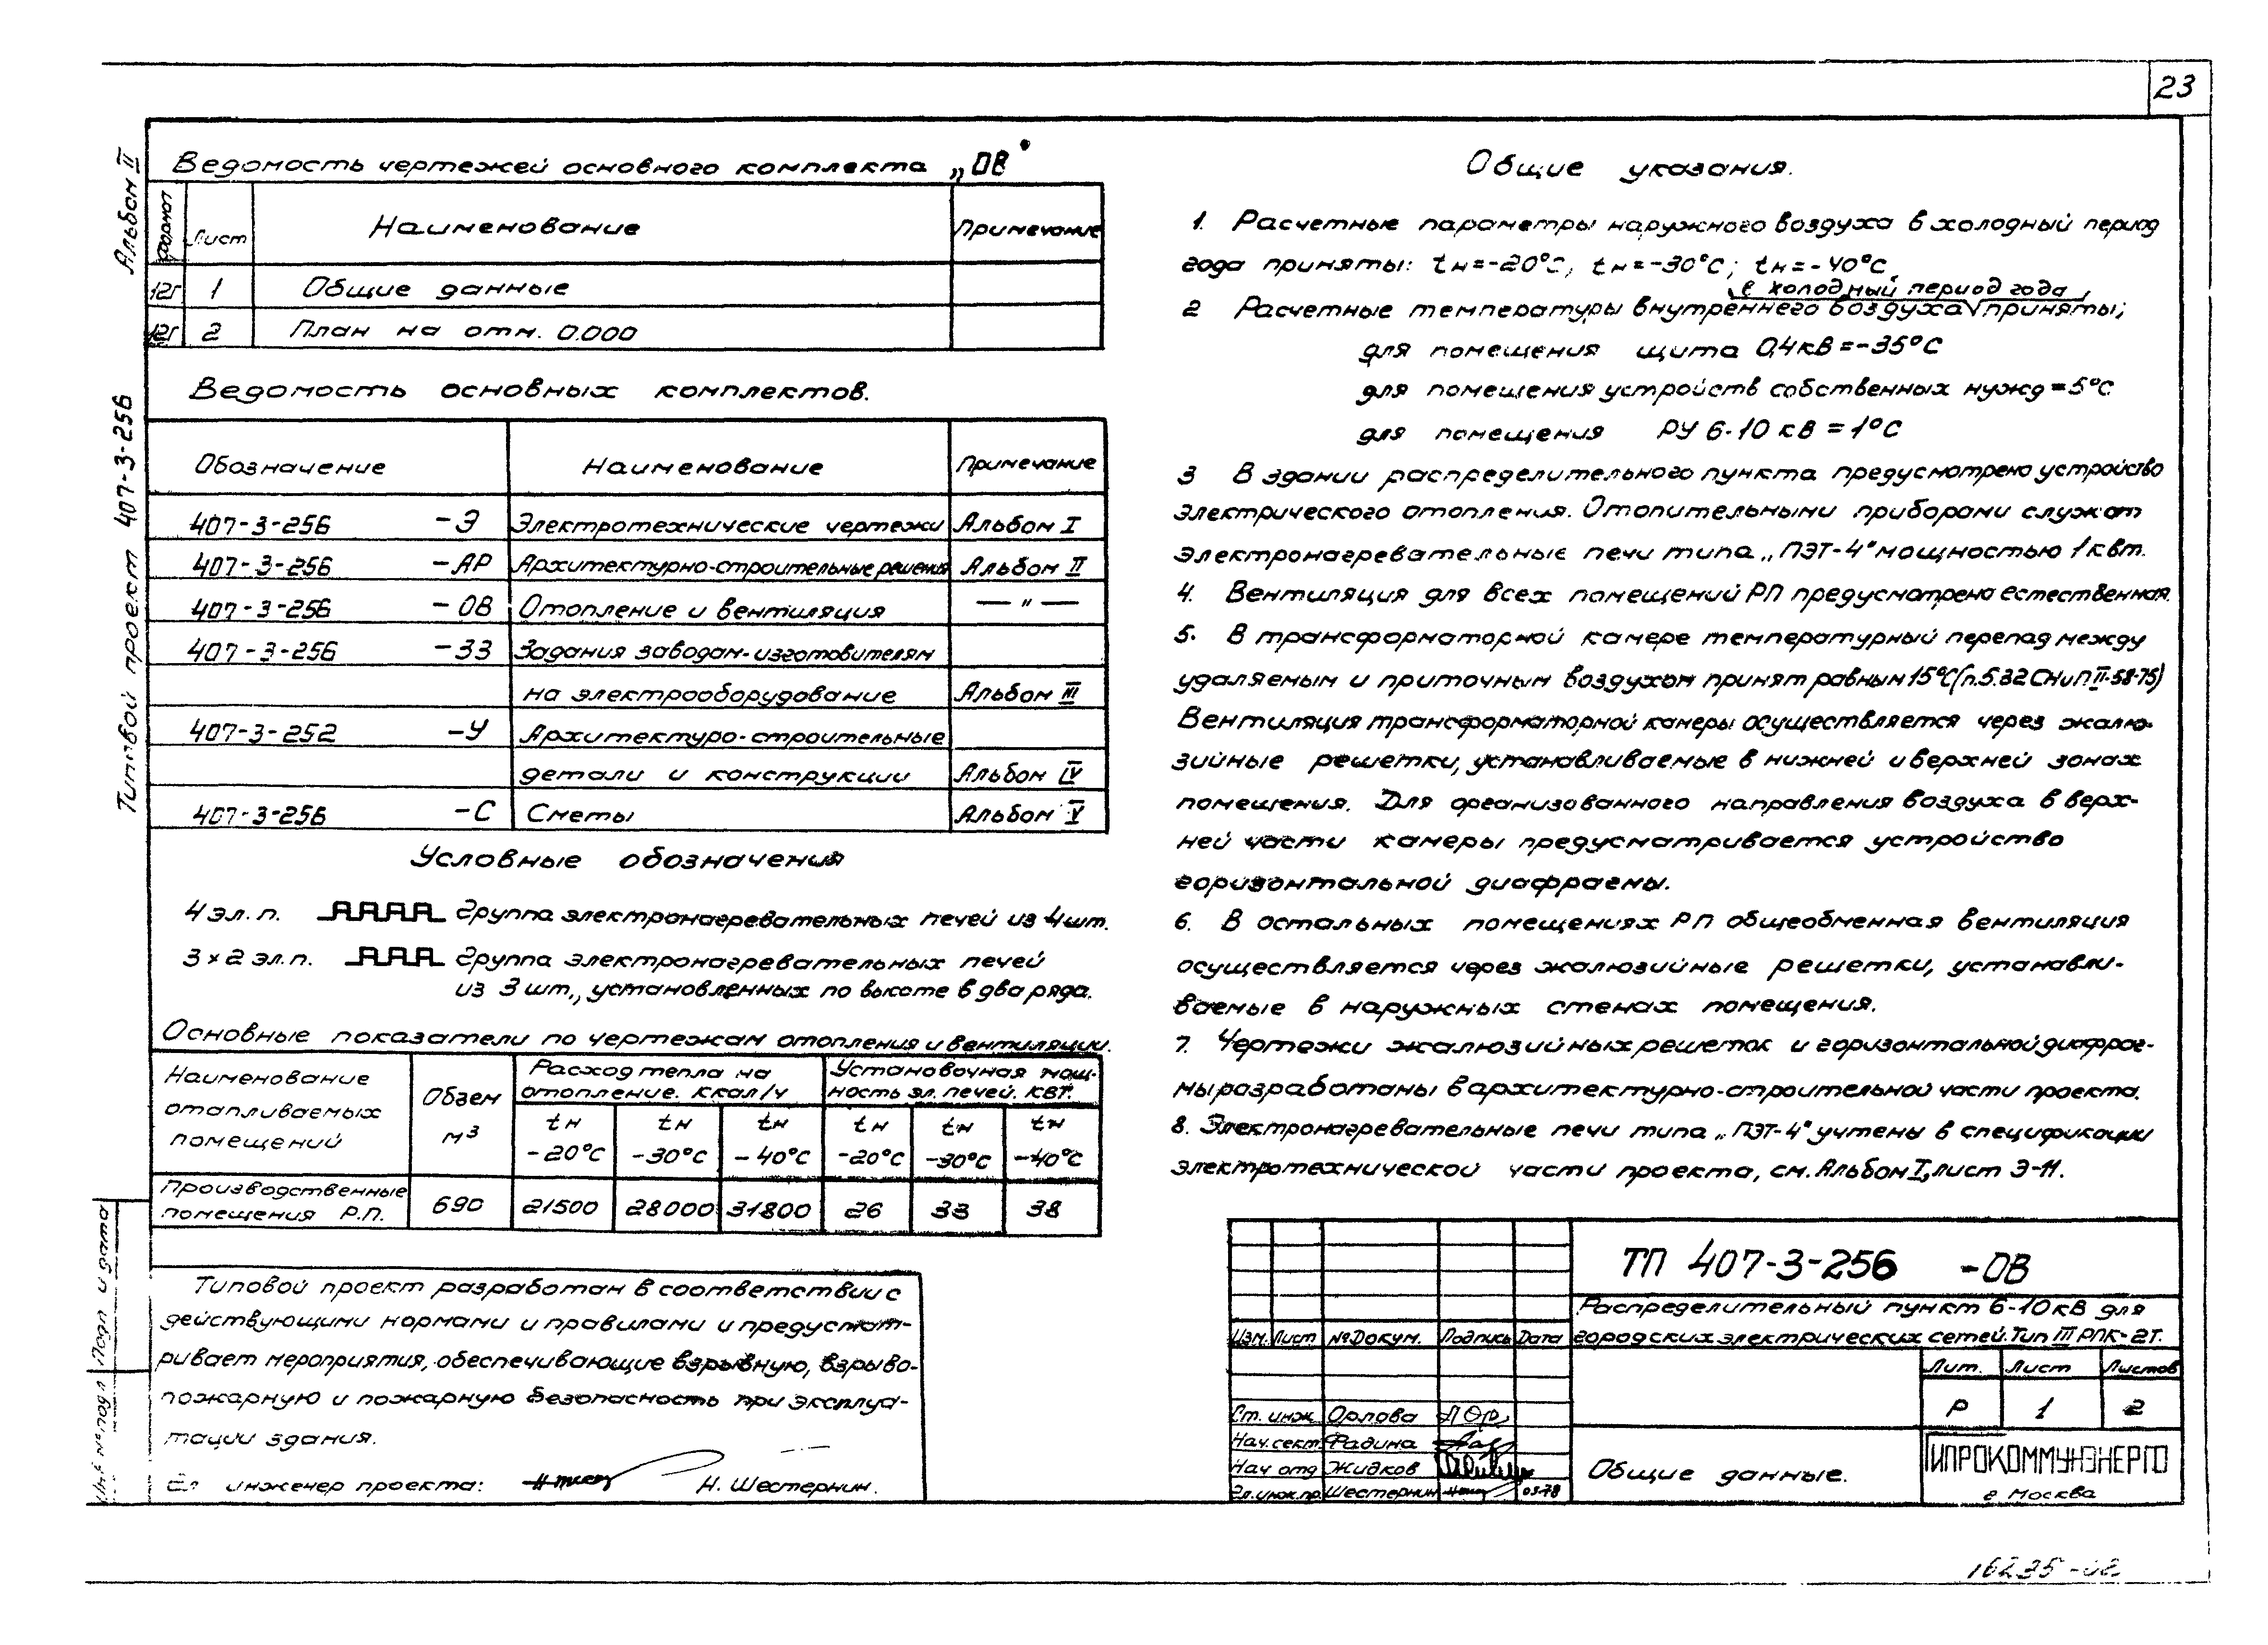 23
Альбом II
Типовой проект 407-3-256
Ведомость чертежей основного комплекта „ОВ"
Формат Лист Наименование Примечание
12г 1 Общие данные
12г 2 План на отм. 0.000
Ведомость основных комплектов.
Обозначение Наименование Примечание
407-3-256 -Э Электротехнические чертежи Альбом I
407-3-256 -АР Архитектурно-строительные решения Альбом II
407-3-256 -ОВ Отопление и вентиляция — " —
407-3-256 -ЗЗ Задания заводам-изготовителям
на электрооборудование Альбом III
407-3-252 -У Архитектуро-строительные
детали и конструкции Альбом IV
407-3-256 -С Сметы Альбом V
Условные обозначения
4 эл. п. Группа электронагревательных печей из 4 шт.
3 × 2 эл. п. Группа электронагревательных печей
из 3 шт., установленных по высоте в два ряда.
Основные показатели по чертежам отопления и вентиляции.
Наименование отапливаемых помещений Обзем м³ Расход тепла на отопление. ккал/ч Установочная мощность эл. печей. КВТ.
tн -20°С tн -30°С tн -40°С tн -20°С tн -30°С tн -40°С
Производственные помещения Р.П. 690 21500 28000 31800 26 33 38
Типовой проект разработан в соответствии с
действующими нормами и правилами и предусмат-
ривает мероприятия, обеспечивающие взрывную, взрыво-
пожарную и пожарную безопасность при эксплуа-
тации здания.
Гл инженер проекта: Н. Шестернин.
Общие указания.
1. Расчетные параметры наружного воздуха в холодный период
года приняты: tн=-20°С; tн=-30°С; tн=-40°С.
в холодный период года
2 Расчетные температуры внутреннего воздуха приняты;
для помещения щита 0,4кВ=-35°С
для помещения устройств собственных нужд=5°С
для помещения РУ 6-10 кВ = 1°С
3 В здании распределительного пункта предусмотрено устройство
электрического отопления. Отопительными приборами служат
электронагревательные печи типа „ПЭТ-4" мощностью 1 квт.
4. Вентиляция для всех помещений РП предусмотрена естественная.
5. В трансформаторной камере температурный перепад между
удаляемым и приточным воздухом принят равным 15°С (п.5.32 СНиП II-58-75)
Вентиляция трансформаторной камеры осуществляется через жалю-
зийные решетки, устанавливаемые в нижней и верхней зонах
помещения. Для организованного направления воздуха в верх-
ней части камеры предусматривается устройство
горизонтальной диафрагмы.
6. В остальных помещениях РП общеобменная вентиляция
осуществляется через жалюзийные решетки, устанавли-
ваемые в наружных стенах помещения.
7. Чертежи жалюзийных решеток и горизонтальной диафраг-
мы разработаны в архитектурно-строительной части проекта.
8. Электронагревательные печи типа „ПЭТ-4" учтены в спецификации
электротехнической части проекта, см. Альбом I, лист Э-11.
ТП 407-3-256 -ОВ
Распределительный пункт 6-10 кВ для
городских электрических сетей. Тип III РПК-2Т.
Изм. Лист №Докум. Подпись Дата
Лит. Лист Листов
Р 1 2
Ст. инж. Орлова
Нач. сект. Фадина
Нач отд Жидков
Гл. инж. пр. Шестернин 03-78
Общие данные.
ГИПРОКОММУНЭНЕРГО
г Москва
Подп и дата
Инв № подл
16235-02